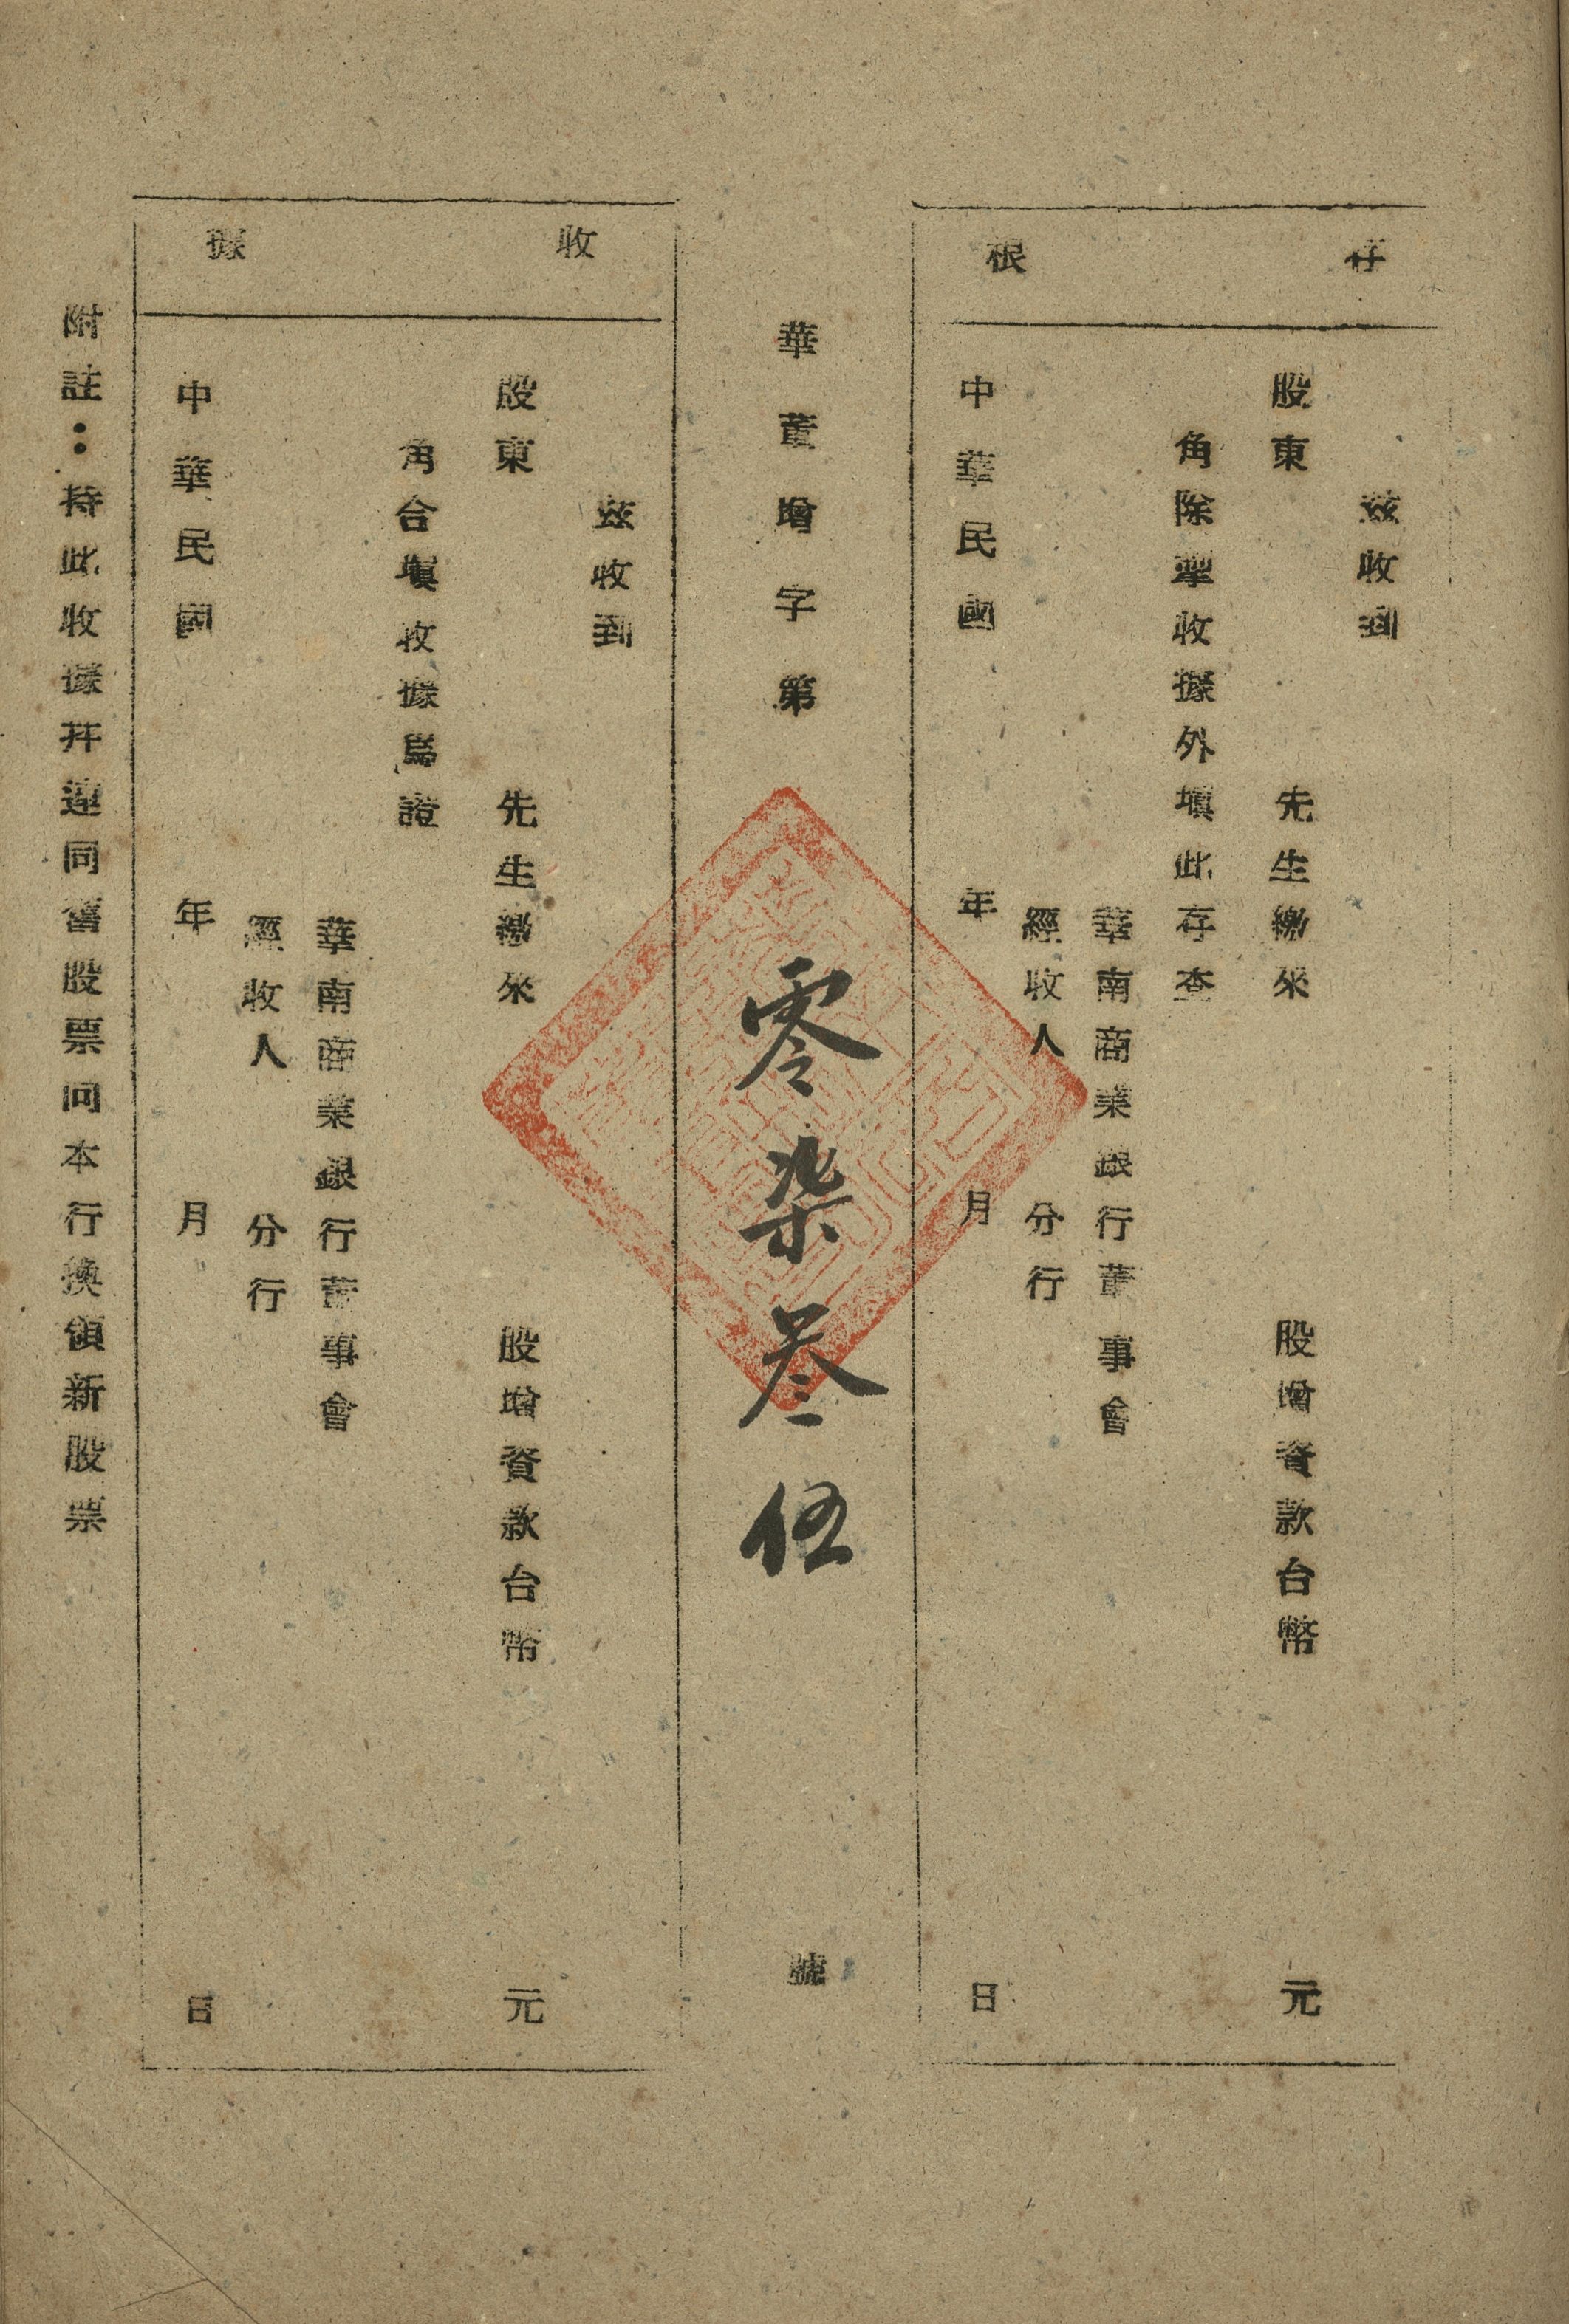 存根
茲收到
股東　先生繳來　股增資款台幣　元
角除掣收據外填此存查
華南商業銀行董事會
經收人　分行
中華民國　年　月　日
華董增字第零柒叁伍號
收據
茲收到
股東　先生繳來　股增資款台幣　元
角合填收據爲證
華南商業銀行董事會
經收人　分行
中華民國　年　月　日
附註：持此收據并連同舊股票向本行換領新股票